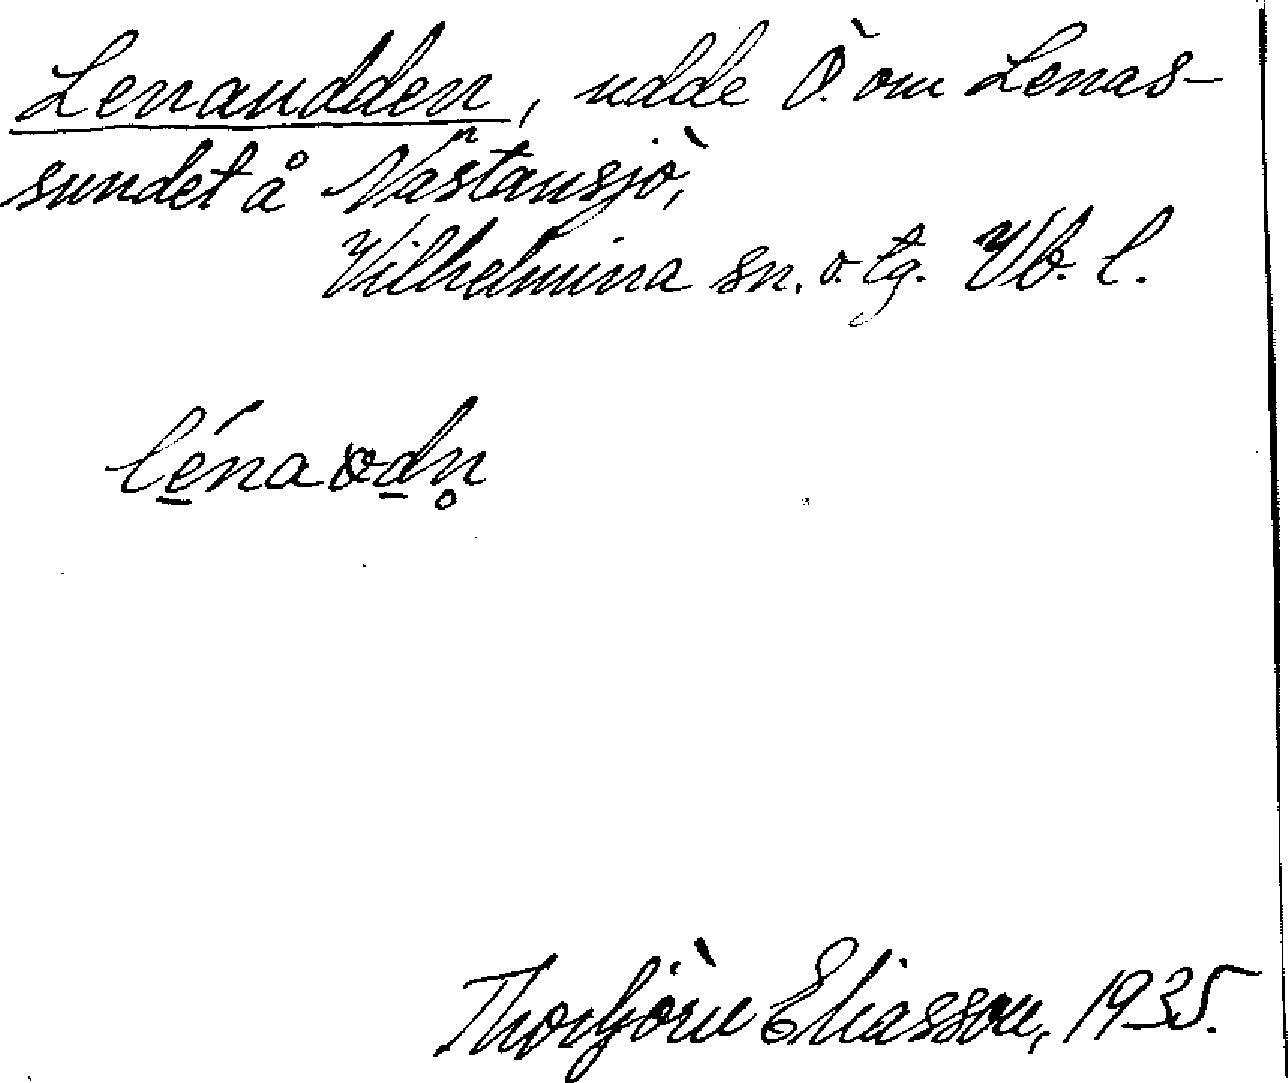 Lenaudden, udde Ö. om Lenas-
sundet å Nästansjö,
Vilhelmina sn. o. tg. Vb. l.
lénaωdn̥
Thorbjörn Eliasson, 1935.